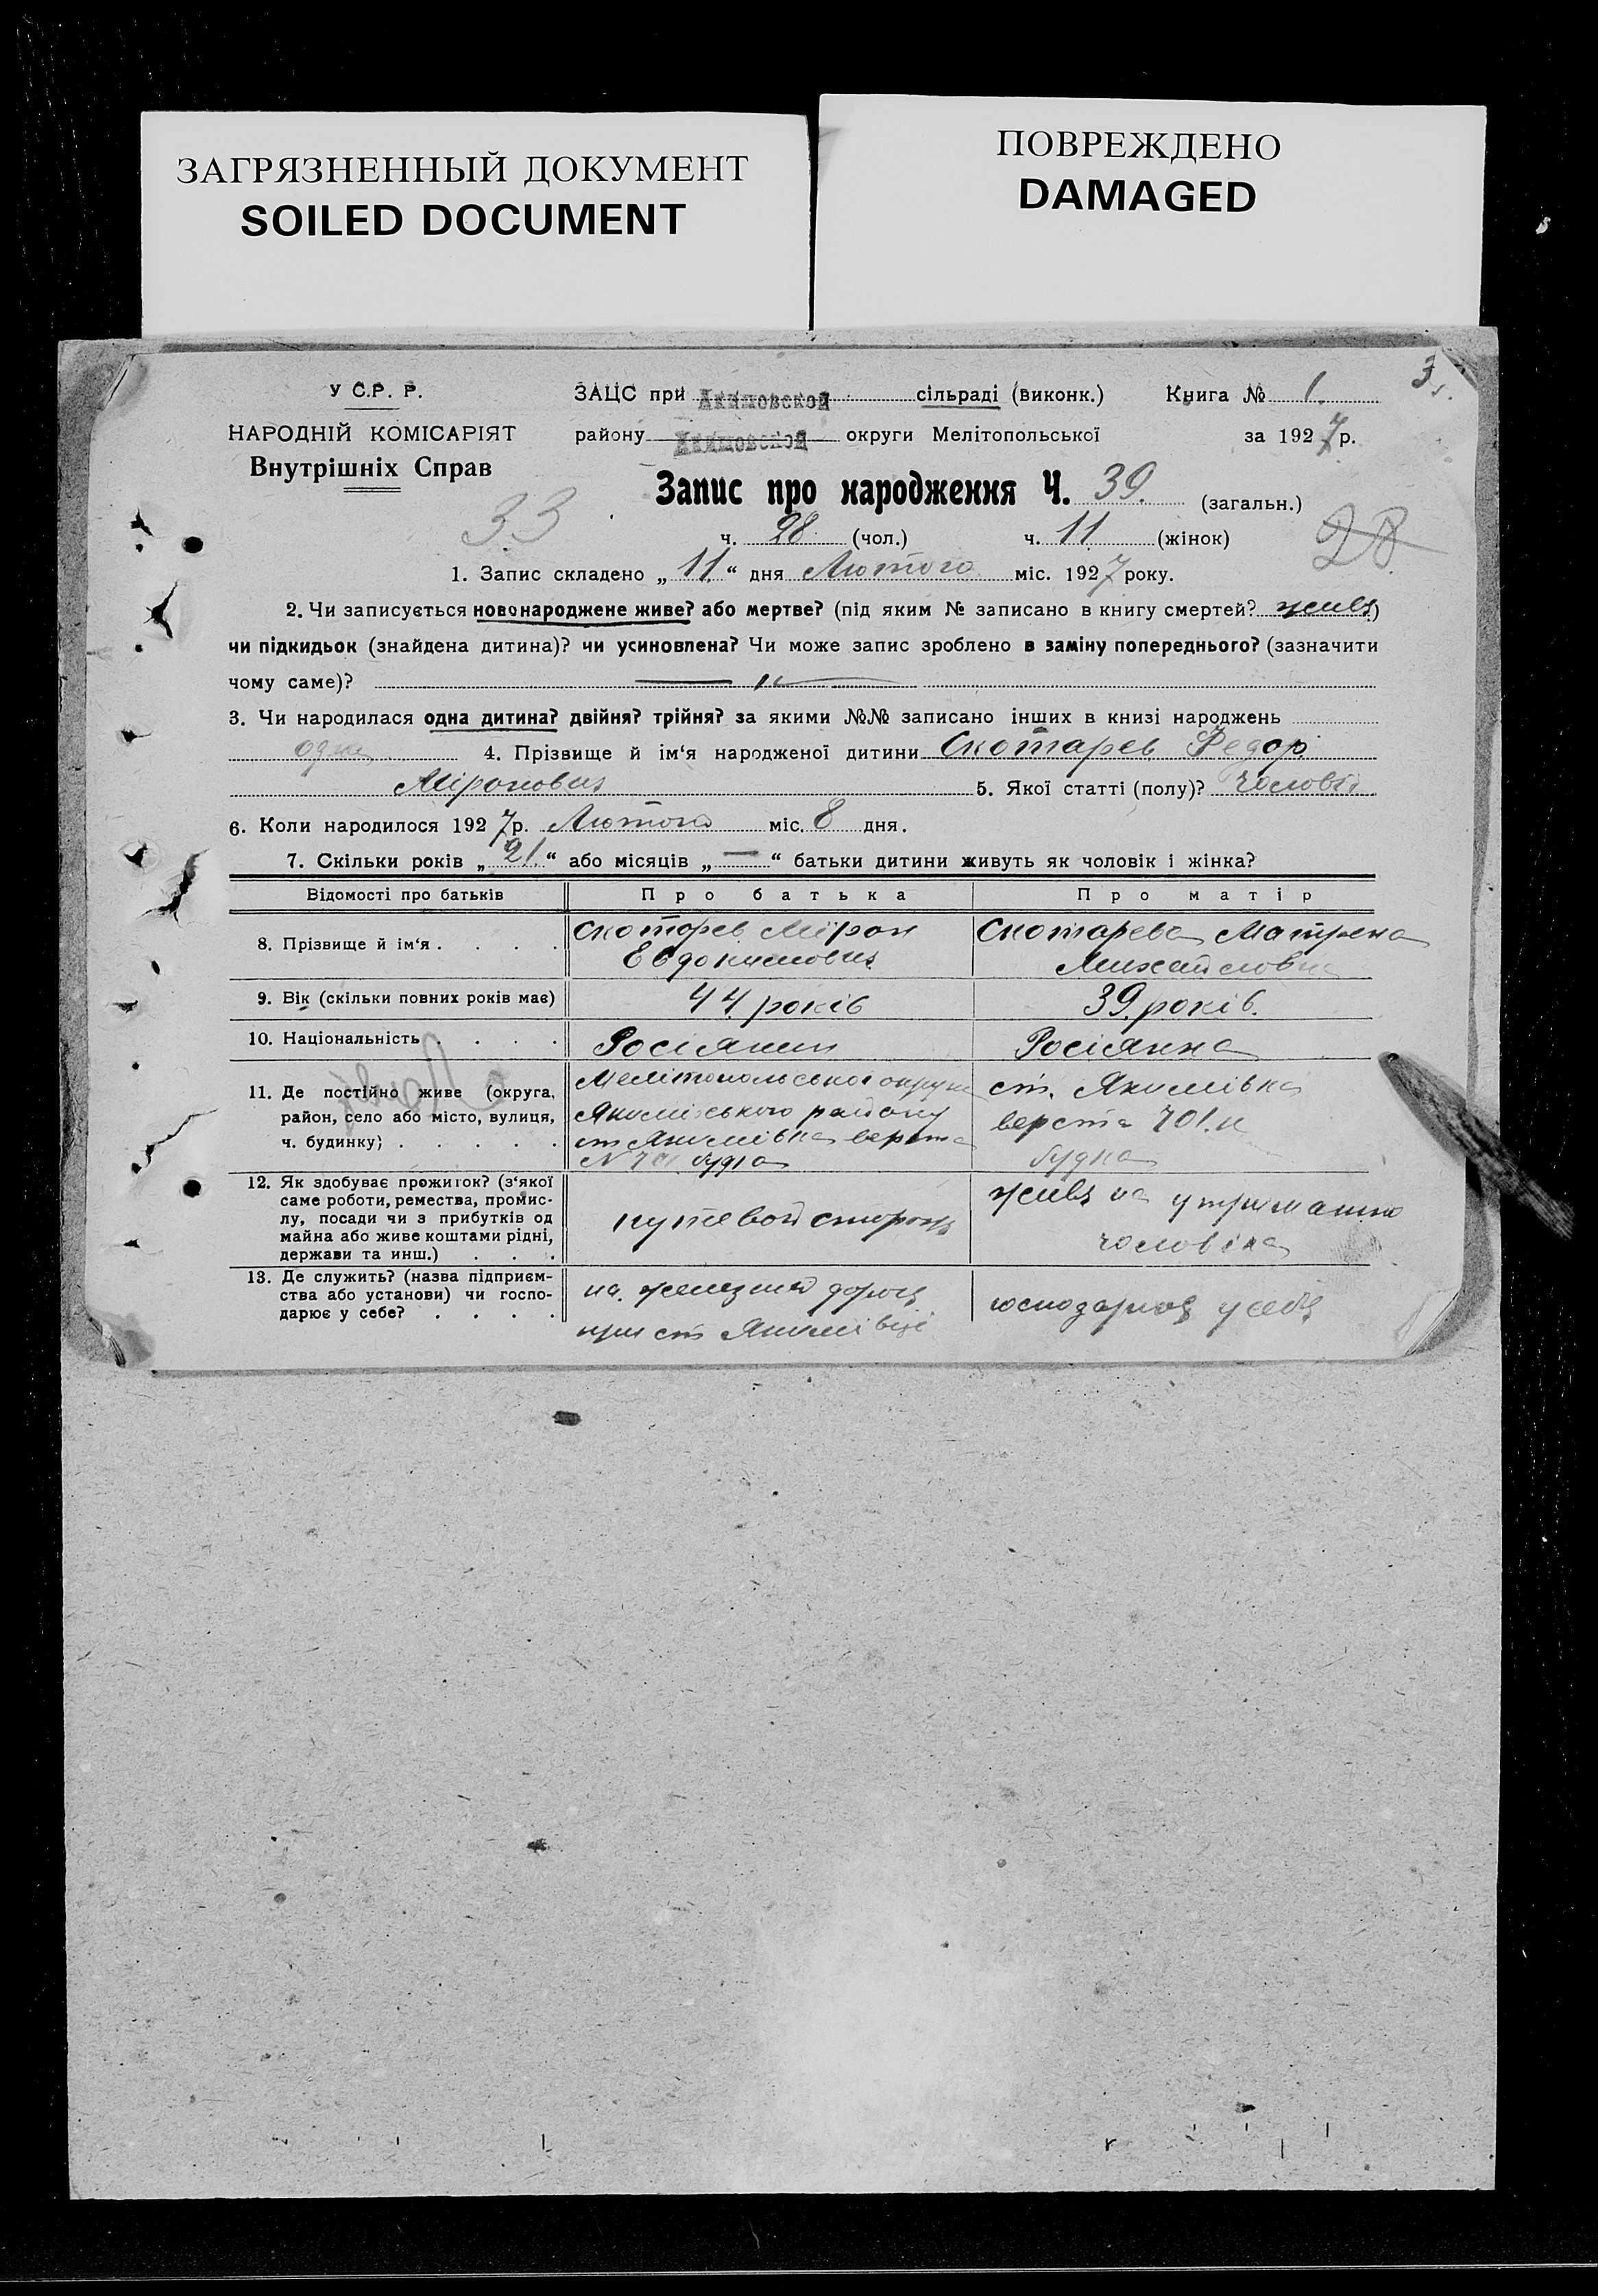 ЗАГРЯЗНЕННЫЙ ДОКУМЕНТ
SOILED DOCUMENT
ПОВРЕЖДЕНО
DAMAGED
3
У С.Р. Р.
НАРОДНІЙ КОМІСАРІЯТ
Внутрішніх Справ
ЗАЦС при Акимовской сільраді (виконк.) Книга № 1.
району Акимовской округи Мелітопольської за 1927 р.
Запис про народження Ч. 39. (загальн.)
33
ч. 28 (чол.) ч. 11 (жінок)
28
1. Запис складено „11“ дня Лютого міс. 1927 року.
2. Чи записується новонароджене живе? або мертве? (під яким № записано в книгу смертей? живе)
чи підкидьок (знайдена дитина)? чи усиновлена? Чи може запис зроблено в заміну попереднього? (зазначити
чому саме)?
3. Чи народилася одна дитина? двійня? трійня? за якими №№ записано інших в книзі народжень
одна 4. Прізвище й ім‘я народженої дитини Скотарев Федор
Міронович 5. Якої статті (полу)? чоловіч
6. Коли народилося 1927 р. Лютого міс. 8 дня.
7. Скільки років „21“ або місяців „—“ батьки дитини живуть як чоловік і жінка?
Відомості про батьків Про батька Про матір
8. Прізвище й ім‘я . . . . Скотарев Мірон Скотарева Матрена
Евдокимович Михайловна
9. Вік (скільки повних років має) 44 років 39. років.
10. Національність . . . . Росіянин Росіянка
11. Де постійно живе (округа, район, село або місто, вулиця, ч. будинку) . . . . .
Мелітопольської округи
Якимівського району
ст Якимівка верста
N 701 будка
ст. Якимівка
верста 701.й
будка
12. Як здобуває прожиток? (з‘якої
саме роботи, ремества, промис-
лу, посади чи з прибутків од
майна або живе коштами рідні,
держави та инш.) . . .
путевой сторож
живе на утриманню
чоловіка
13. Де служить? (назва підприєм-
ства або установи) чи госпо-
дарює у себе? . . . .
на железній дорозі
при ст Якимівці
господарює у себе